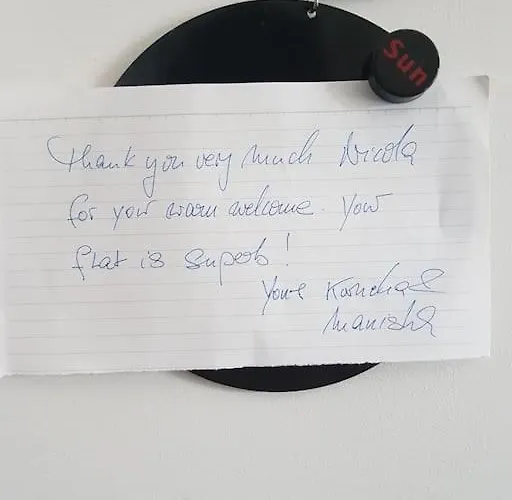 Sun
Thank you very much Nicola
for your warm welcome. Your
flat is superb!
Yours
Manisha